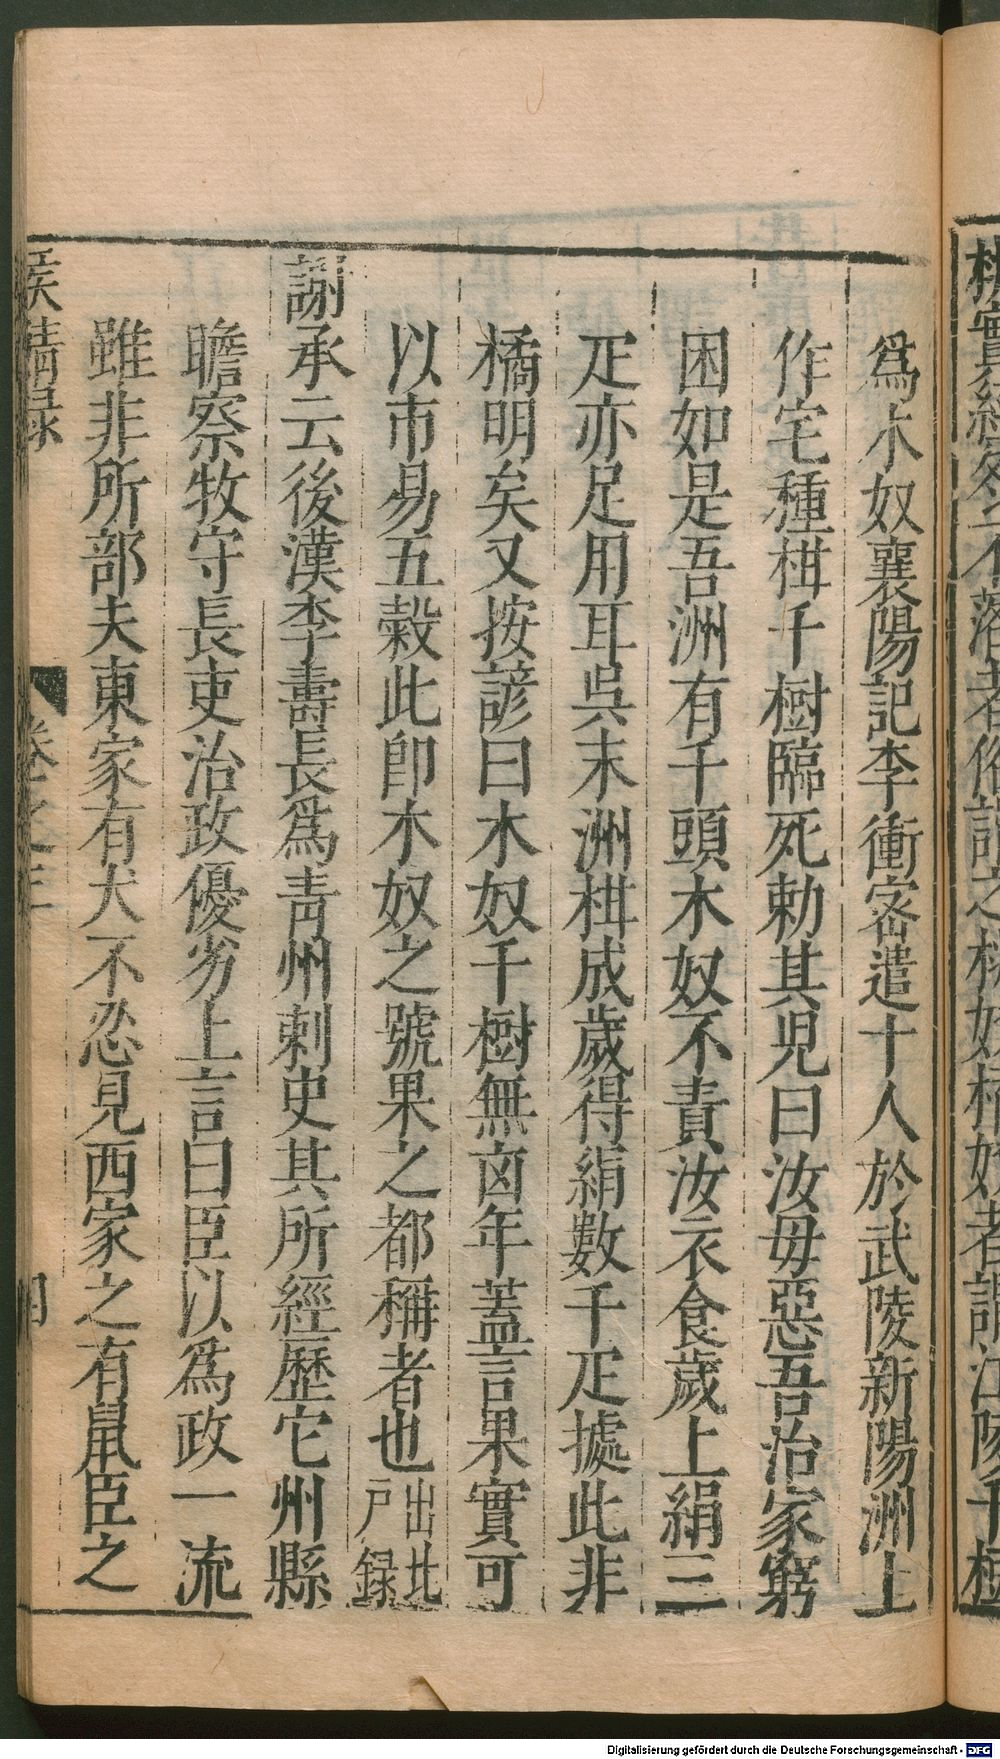 爲木奴襄陽記李衝密遣十人於武陵新陽洲上
作宅種柑千樹臨死勑其児曰汝毋惡吾治家窮
困如是吾洲有千頭木奴不責汝衣食歲上絹三
疋亦足用耳吳末洲柑成歲得絹數千疋據此非
橘明矣又按諺曰木奴千樹無凶年蓋言果實可
以市易五穀此即木奴之號果之都稱者也出北戶録
謝承云後漢李壽長爲青州刺史其所經歷它州縣
瞻察牧守長吏治政優劣上言曰臣以爲政一流
雖非所部夫東家有犬不忍見西家之有鼠臣之
侯鯖録
卷之三
四
Digitalisierung gefördert durch die Deutsche Forschungsgemeinschaft - DFG